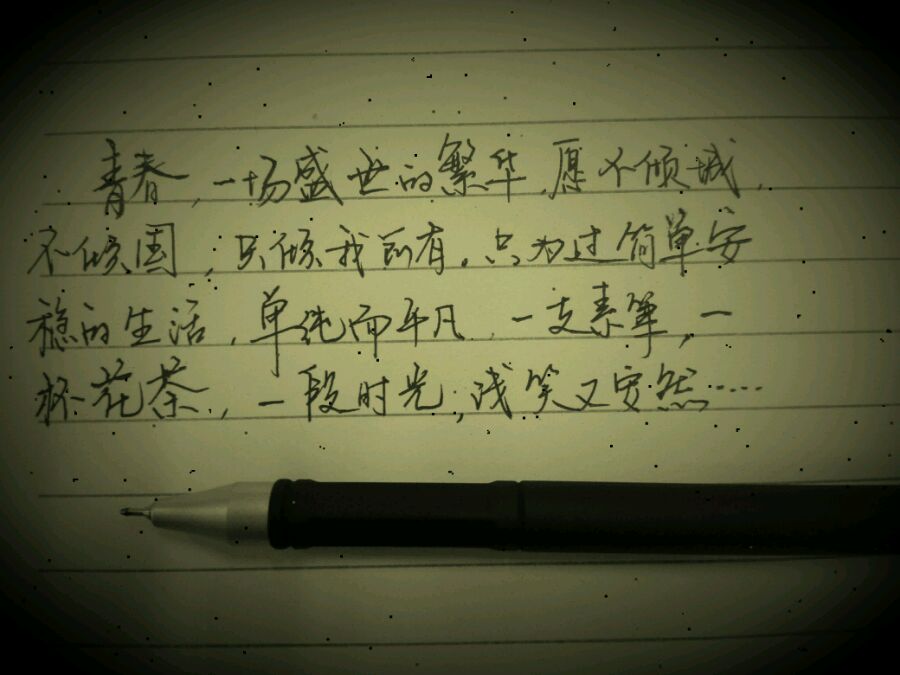 青春,一场盛世的繁华,愿不倾城,
不倾国,只倾我所有。只为过简单安
稳的生活,单纯而平凡,一支素笔,一
杯花茶,一段时光,浅笑又安然……